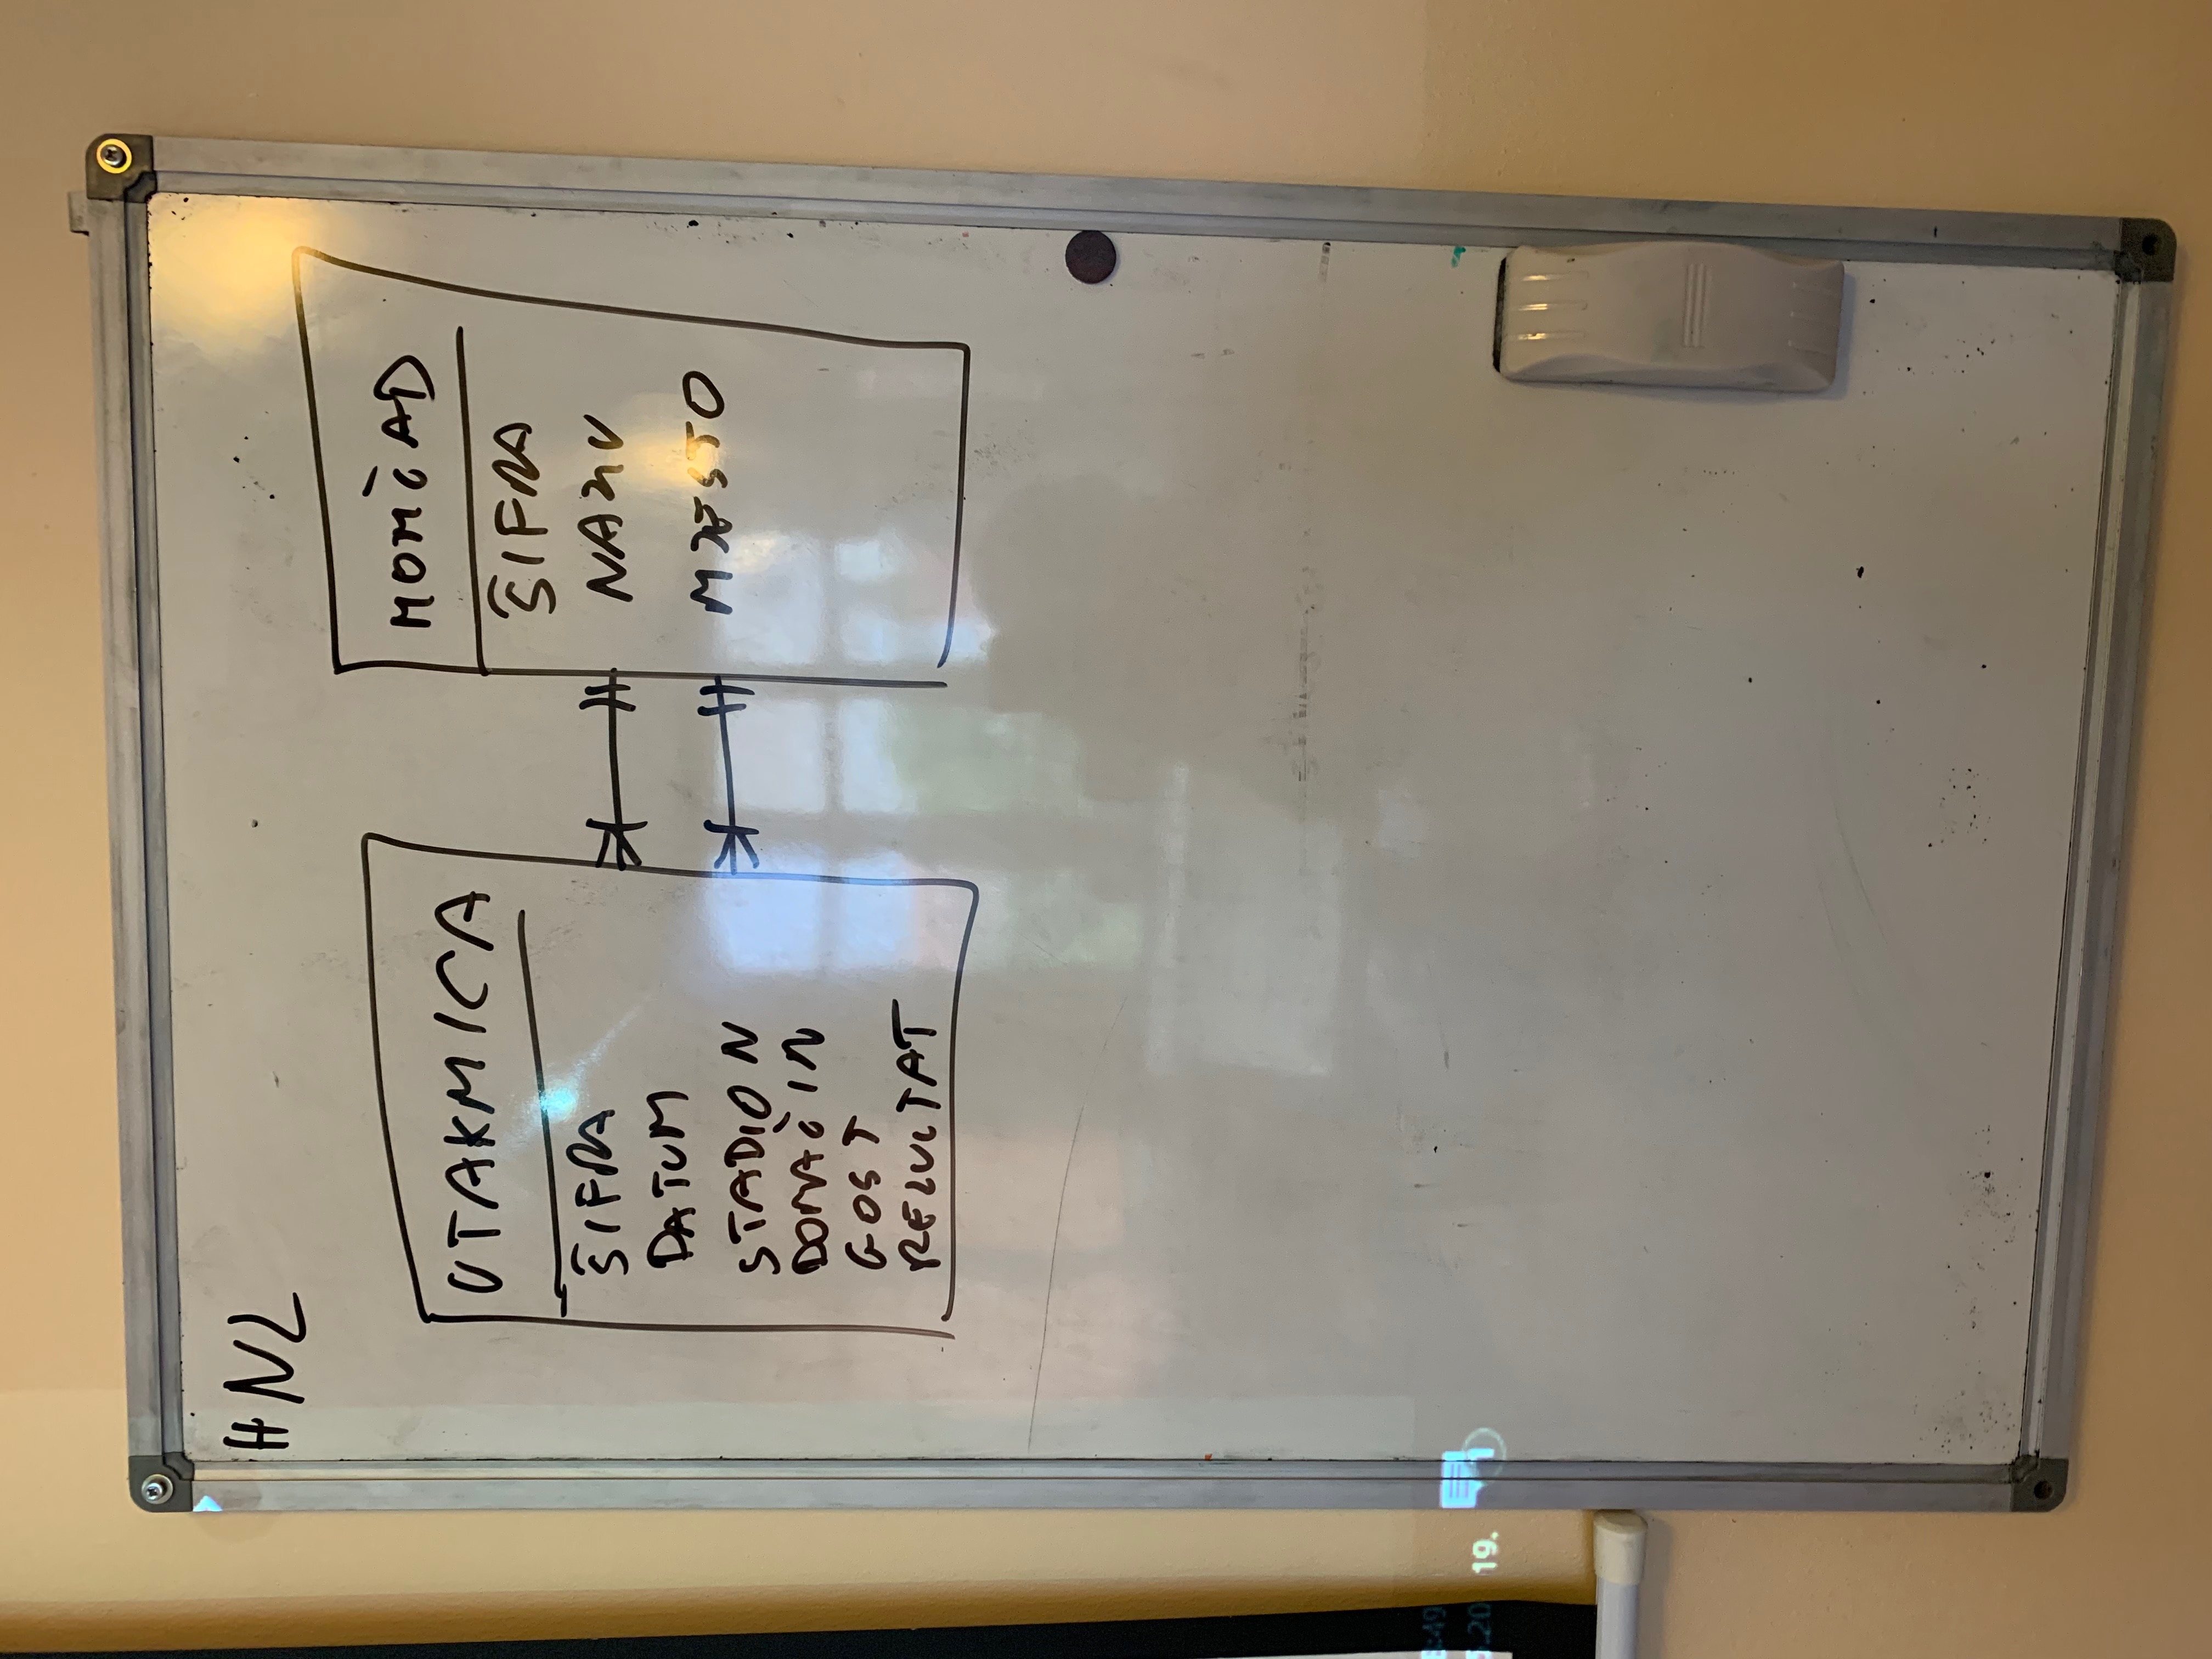 HNL
UTAKMICA
ŠIFRA
DATUM
STADION
DOMAĆIN
GOST
REZULTAT
MOMČAD
ŠIFRA
NAZIV
MJESTO
:49
.20 19.
1